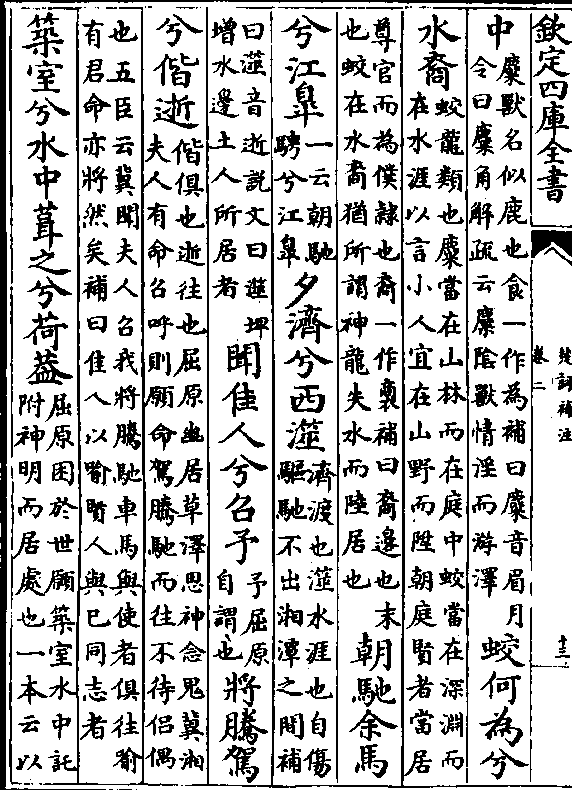 欽定四庫全書
楚詞補注
卷二
十三
中麋獸名似鹿也食一作為補曰麋音眉月
令曰麋角解疏云麋隂獸情淫而游澤蛟何為兮
水裔蛟龍類也麋當在山林而在庭中蛟當在深淵而
在水涯以言小人宜在山野而陞朝庭賢者當居
尊官而為僕隸也裔一作裛補曰裔邊也末
也蛟在水裔猶所謂神龍失水而陸居也朝馳余馬
兮江臯一云朝馳
騁兮江臯夕濟兮西澨濟渡也澨水涯也自傷
驅馳不出湘潭之間補
曰澨音逝說文曰澨埤
增水邊土人所居者聞佳人兮召予予屈原
自謂也將騰駕
兮偕逝偕俱也逝往也屈原幽居草澤思神念鬼冀湘
夫人有命召呼則願命駕騰馳而往不待侶偶
也五臣云冀聞夫人召我將騰馳車馬與使者俱往喻
有君命亦將然矣補曰佳人以喻賢人與已同志者
築室兮水中葺之兮荷蓋屈原困於世願築室水中託
附神明而居處也一本云以